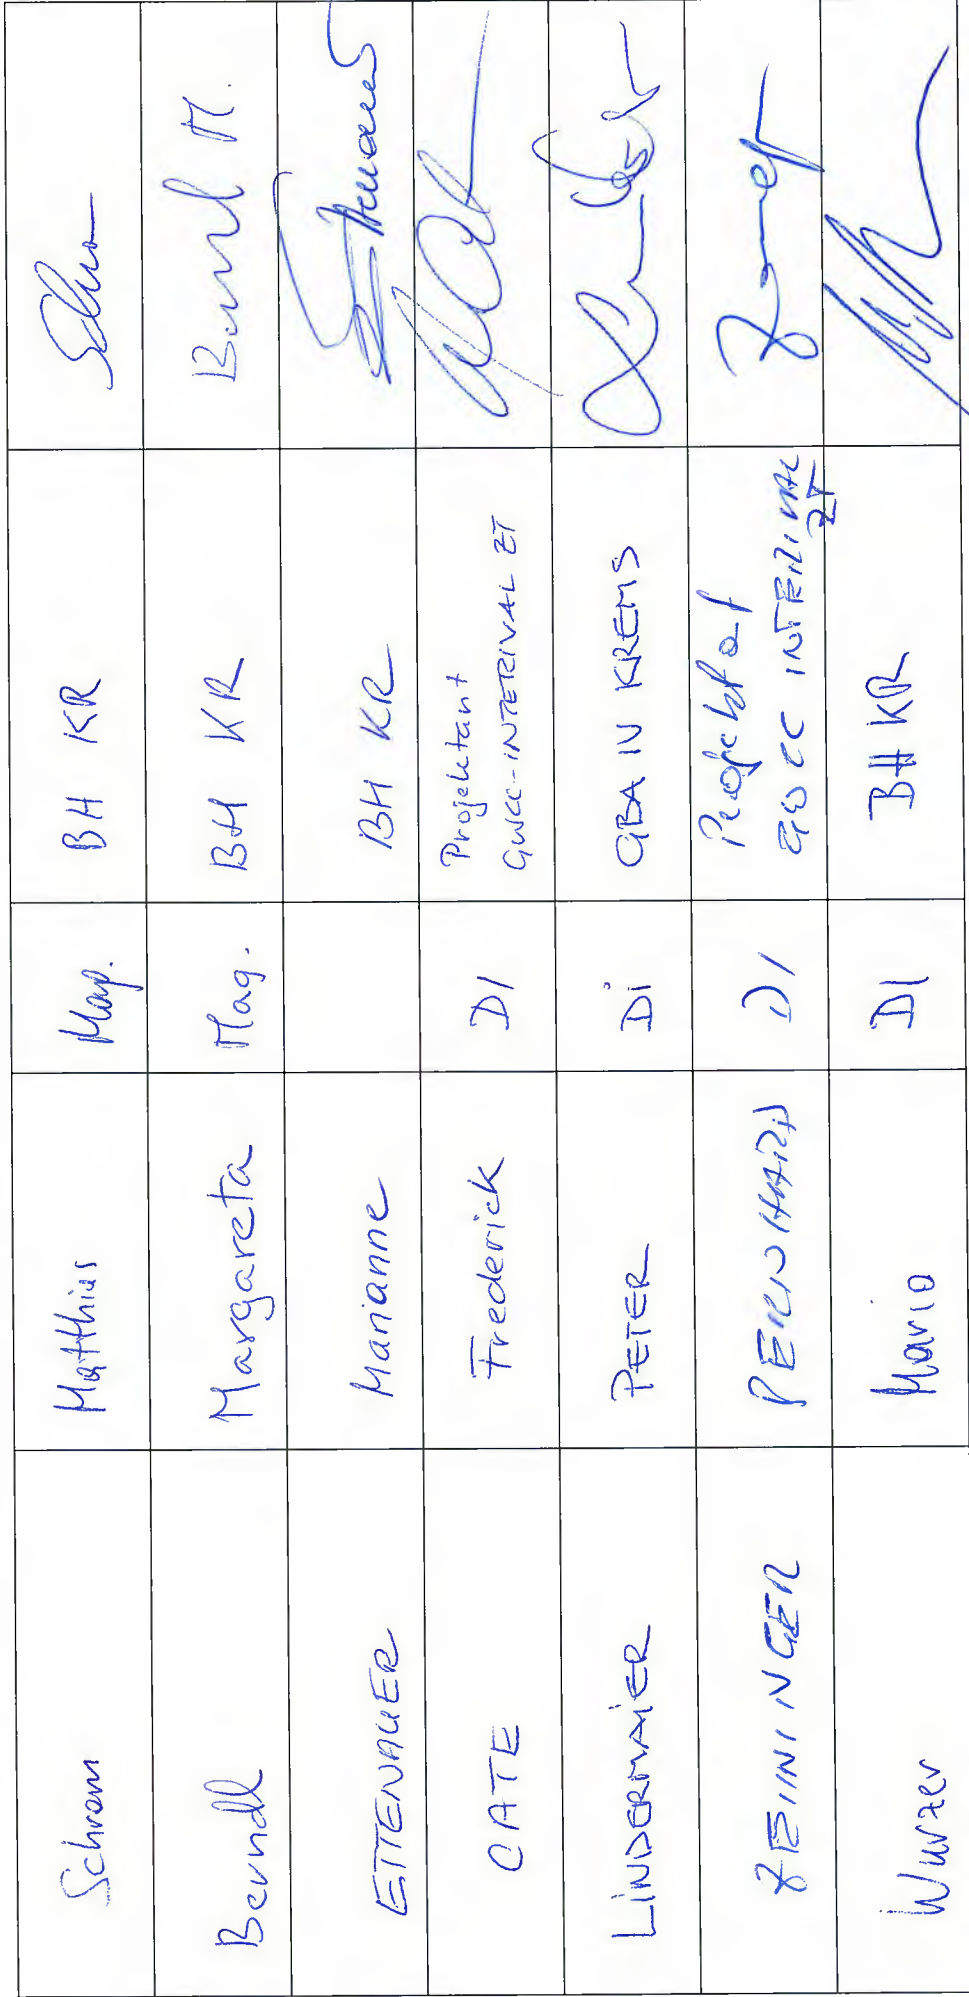 Schram Matthias Mag. BH KR
Berndl Margareta Mag. BH KR Berndl M.
ETTENAUER Marianne BH KR
CATE Frederick DI Projektant
GWCC-INTERIVAL ZT
LINDERMAIER PETER Di GBA IV KREMS
ZEININGER BERNHARD DI Projektant
GWCC INTERIVAL
ZT
Wurzer Mario DI BH KR